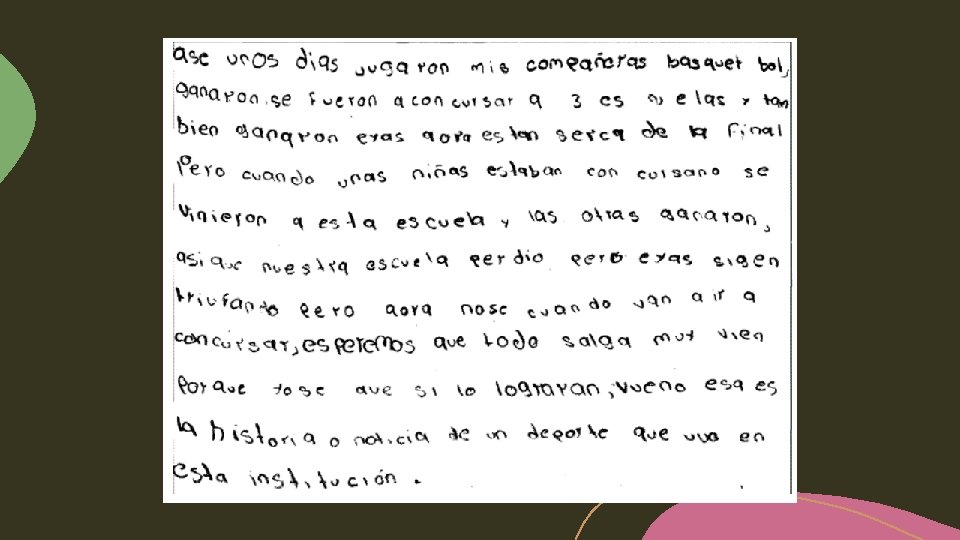 ase unos dias jugaron mis compañeras basquet bol,
ganaron, se fueron a con cursar a 3 es cu elas y tan
bien ganaron eyas aora es tan serca de la Final
Pero cuando unas niñas estaban con cursano se
vinieron a esta escuela y las otras ganaron,
asi que nuestra escuela perdio pero eyas sigen
triufanto pero aora nose cuando van a ir a
concursar, esperemos que todo salga muy vien
porque yo se que si lo lograran, vueno esa es
la historia o noticia de un deporte que uvo en
esta institución.